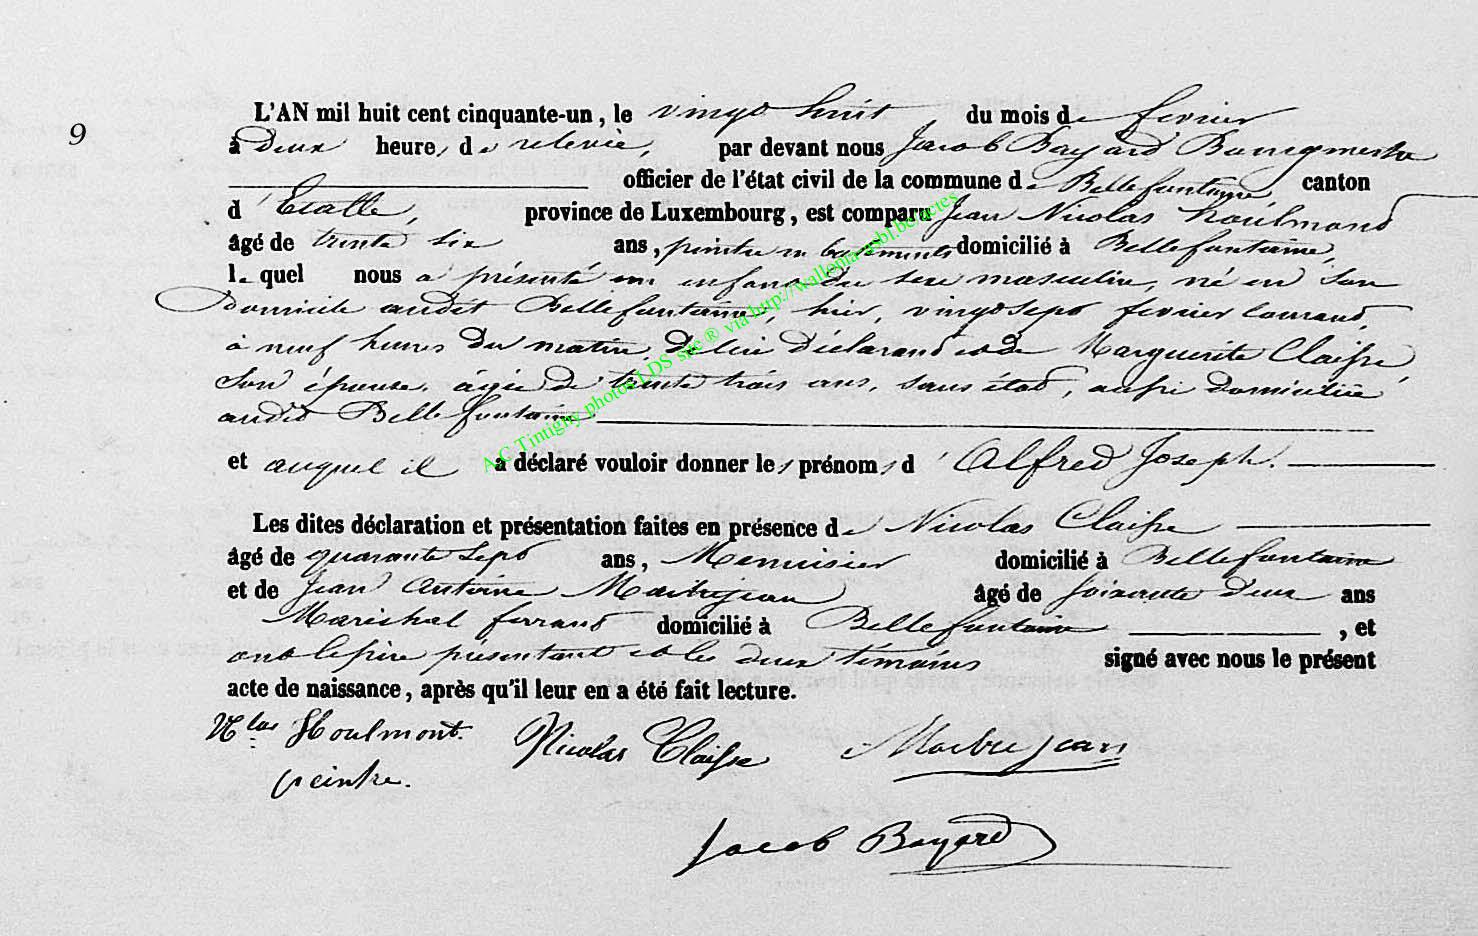 9
L'AN mil huit cent cinquante-un, le vingt huit du mois de fevrier
à Deux heures de relevée, par devant nous Jacob Bayard Bourgmestre
officier de l'état civil de la commune de Bellefontaine, canton
d'Etalle, province de Luxembourg, est comparu Jean Nicolas Houlmond
âgé de trente six ans, peintre en batiments domicilié à Bellefontaine,
lequel nous a présenté un enfant du sexe masculin, né en son
Domicile audit Bellefontaine, hier, vingt sept fevrier courant,
à neuf heures du matin, de lui Déclarant et de Marguerite Claisse,
son épouse, agée de trente trois ans, sans état, aussi domiciliée
audit Bellefontaine
et auquel il a déclaré vouloir donner les prénoms d'Alfred Joseph.
Les dites déclaration et présentation faites en présence de Nicolas Claisse
âgé de quarante sept ans, Menuisier domicilié à Bellefontaine
et de Jean Antoine Maitrejean âgé de soixante deux ans
Maréchal ferrant domicilié à Bellefontaine, et
ont le père présentant et les deux témoins signé avec nous le présent
acte de naissance, après qu'il leur en a été fait lecture.
Nlas Houlmont. Nicolas Claisse Maitrejean
peintre.
Jacob Bayard
A.C Tintigny photos LDS site ® via http://wallonia-asbl.be/actes